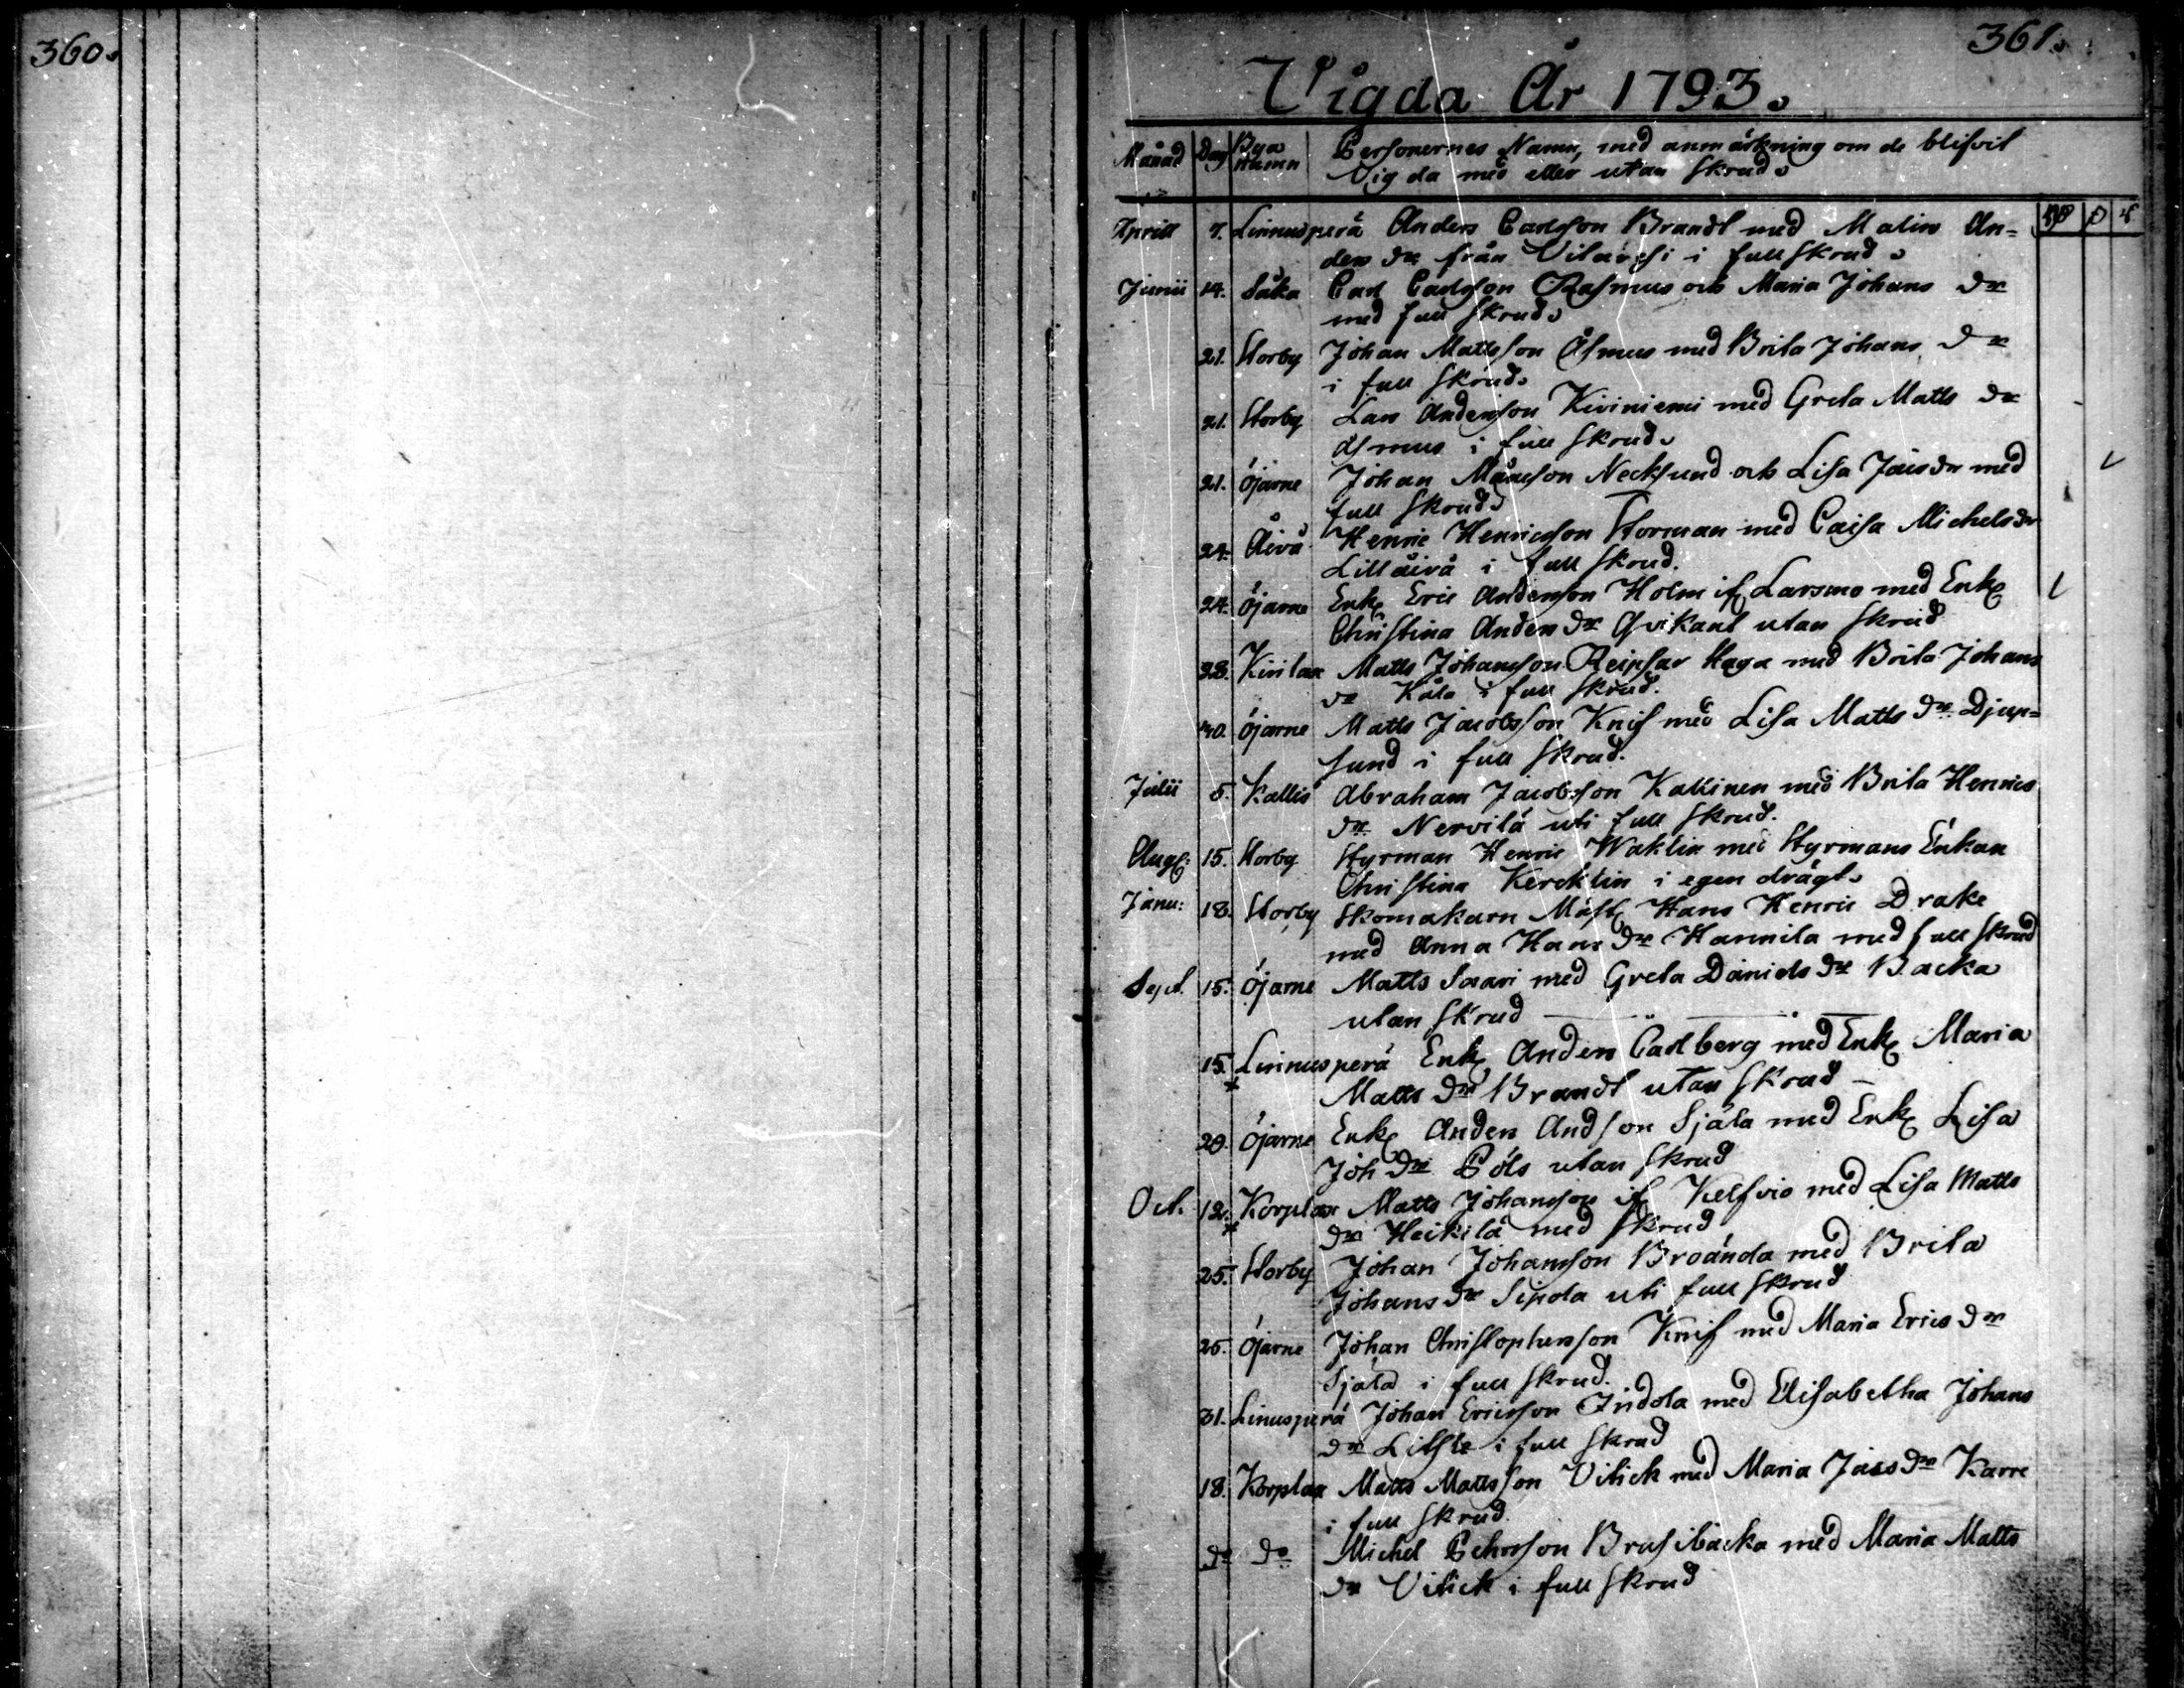 360.
361.
Vigda År 1793.
Månad Dag Bya namn Personernes Namn, med anmärkning om de blifvit
Vigda med eller utan skrud.
Aprill 7. Linnusperä Anders Carlsson Brandt med Malin An=
ders dr från i full skrud.
Junii 14. Såka Carl Carlsson Rasmus och Maria Johans dr
med full skrud.
21. Storby Johan Mattsson Åsmus med Brita Johans dr
i full skrud.
21. Storby Lars Andersson Kiviniemi med Greta Matts dr
Åsmus i full skrud.
21. Öjarne Johan Månsson Necksund och Lisa Jacsdr med
full skrud.
24. Åivå Henric Henricsson Storman med Caisa Michelsdr
Lillåivå i full skrud.
24. Öjarne Enk Eric Andersson Holm if Larsmo med Enk
Christina Anders dr Qvikant utan skrud
28. Kivilax Matts Johansson Reipsar Haga med Brita Johans
dr Kåla i full skrud.
30. Öjarne Matts Jacobsson Knif med Lisa Matts dr Djup=
sund i full skrud.
Julii 5. Kallis Abraham Jacobsson Kallinen med Brita Henrics
dr Nervilä uti full skrud.
Aug: 15. Storby Styrman Henric Waklin med Styrmans Enkan
Christina Kercklin i egen drägt.
Janu: 18. Storby Skomakarn Mäst Hans Henric Drake
med Anna Hans dr Hannila med full skrud
Sept. 15. Öjarne Matts Saari med Greta Daniels dr Backa
utan skrud
15. Linnusperä Enk Anders Carlberg med Enk Maria
Matts dr Brandt utan skrud
29. Öjarne Enk Anders Andsson Själa med Enk Lisa
Joh dr Pöls utan skrud
Oct. 12. Korplax Matts Johansson if Kelfvio med Lisa Matts
dr Heikilä med skrud
25. Storby Johan Johansson Broända med Brita
Johans dr Sipola uti full skrud
25. Öjarne Johan Christophersson Knif med Maria Erics dr
Själa i full skrud.
31. Linusperä Johan Ericsson Indola med Elisabetha Johans
dr Lithle i full skrud
18. Korplax Matts Mattsson Vitick med Maria Jacs dr Karre
i full skrud.
do do Michel Pehrsson Brasibacka med Maria Matts
dr Vitick i full skrud